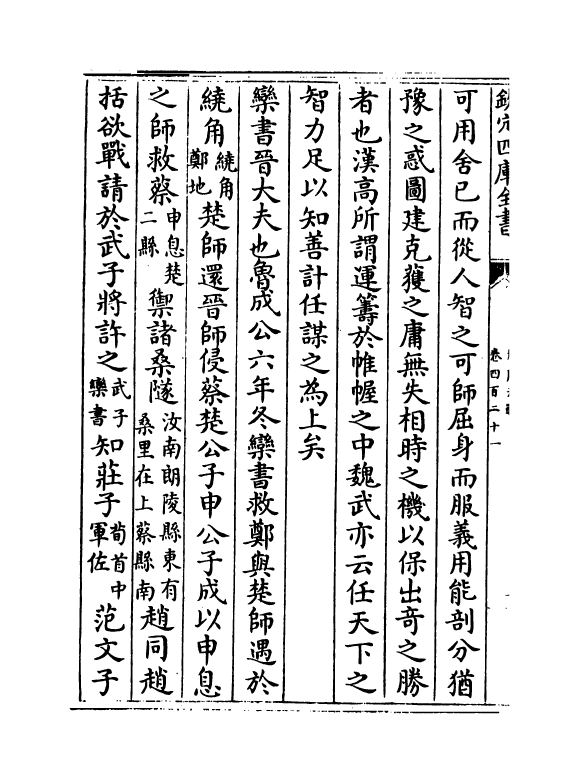 欽定四庫全書
卷四百二十一
可用舍已而從人智之可師屈身而服義用能剖分猶
豫之惑圖建克獲之庸無失相時之機以保出竒之勝
者也漢高所謂運籌於帷幄之中魏武亦云任天下之
智力足以知善計任謀之為上矣
欒書晉大夫也魯成公六年冬欒書救鄭與楚師遇於
繞角繞角鄭地楚師還晉師侵蔡楚公子申公子成以申息
之師救蔡申息楚二縣禦諸桑隧汝南朗陵縣東有桑里在上蔡縣南趙同趙
括欲戰請於武子將許之武子欒書知莊子荀首中軍佐范文子